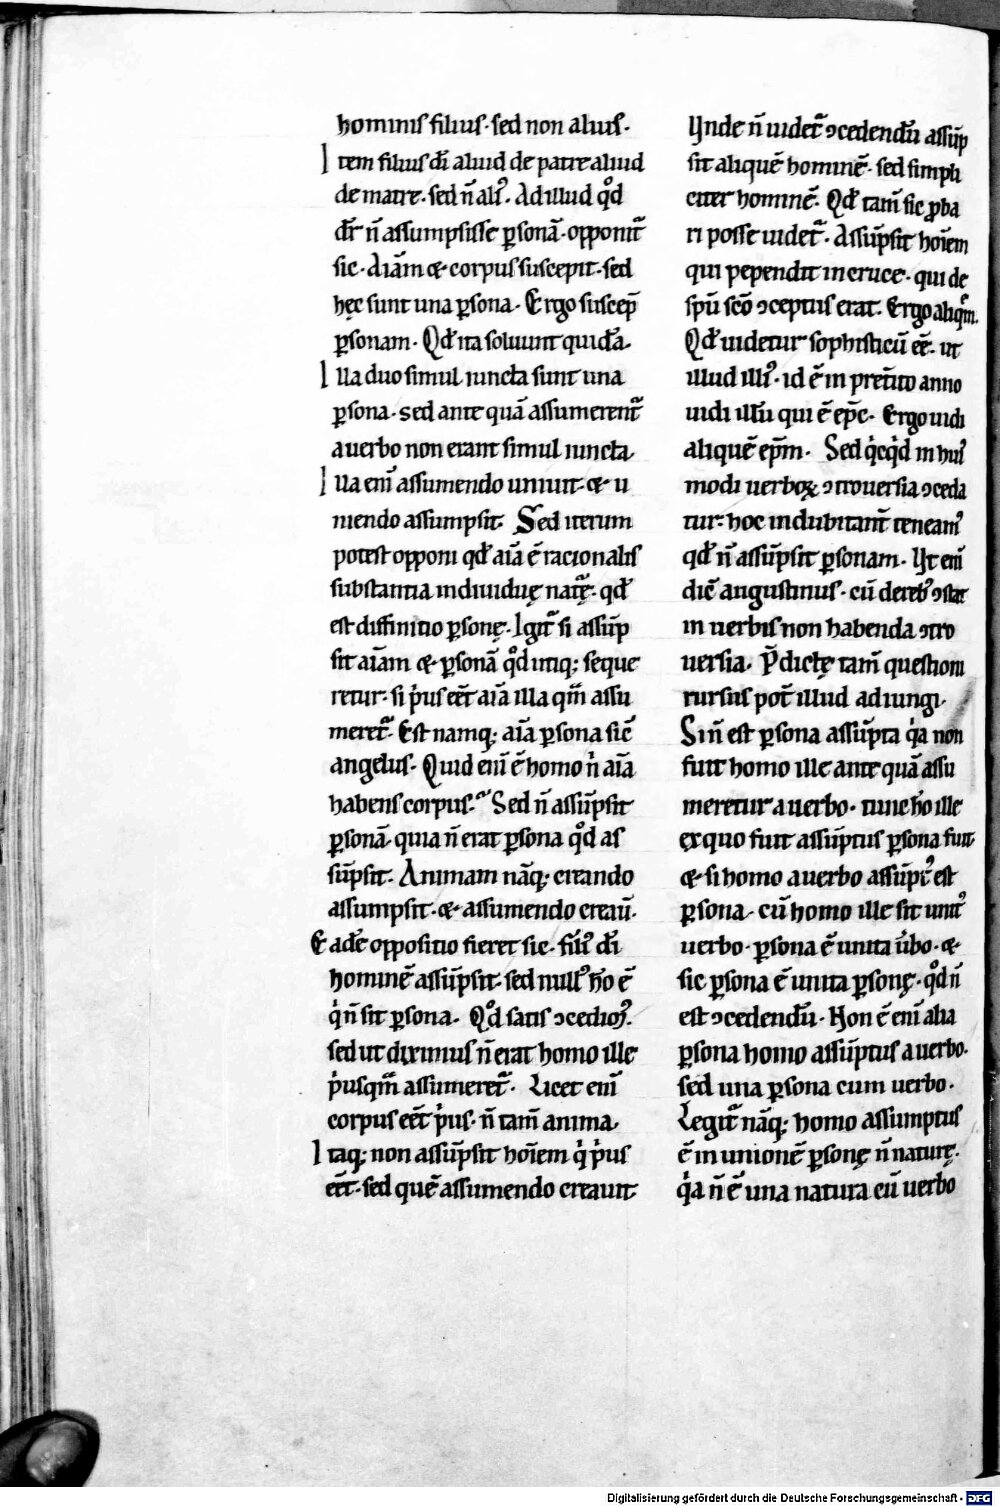 hominis filius· sed non alius·
Item filius dī aliud de patre aliud
de matre· sed n̄ aliꝰ· Ad illud qͦd
dr̄ n̄ assumpsisse ꝑsonā· opponit᷑
sic· Aīam & corpus suscepit· sed
hęc sunt una ꝑsona· Ergo suscep̄
ꝑsonam· Qd̄ ita soluunt quidā·
Illa duo simul iuncta sunt una
ꝑsona· sed ante quā assumerent᷑
a uerbo non erant simul iuncta·
Illa enī assumendo uniuit· & u
niendo assumpsit· Sed iterum
potest opponi qd̄ aīa ē racionalis
substantia indiuiduę nat᷑ę· qd̄
est diffinitio ꝑsonę· Igit᷑ si assūp
sit aīam & ꝑsonā qͦd utiq; seque
retur· si p̍us eēt aīa illa qm̄ assu
meret᷑· Est namq; aīa ꝑsona sic̄
angelus· Quid enī ē homo n̍ aīa
habens corpus· Sed n̄ assūpsit
ꝑsonā· quia n̄ erat ꝑsona qͦd as
sūpsit· Animam nāq; creando
assumpsit· & assumendo creau̅·
Eadē oppositio fieret sic· filiꝰ dī
hominē assūpsit· sed nullꝰ hͦo ē
q̍ n̄ sit ꝑsona· Qͦd satis ꝯcedimꝰ·
sed ut diximus n̄ erat homo ille
p̍usqm̄ assumeret᷑· Licet enī
corpus eēt p̍us· n̄ tam̄ anima·
Itaq; non assūpsit hoīem q̍ p̍us
eēt· sed quē assumendo creauit·
Unde n̄ uidet᷑ ꝯcedendū assūp
sit aliquē hominē· sed simpli
citer hominē· Qd̄ tam̄ sic ꝓba
ri posse uidet᷑· Assūpsit hoīem
qui pependit in cruce· qui de
spū scō ꝯceptus erat· Ergo aliqm̄·
Qd̄ uidetur sophisticū eē· ut
illud illiꝰ· id ē in preter̄ito anno
uidi illū qui ē ep̄c· Ergo uidi
aliquē ep̄m· Sed q̍cq̍d in huiꝰ
modi uerboꝝ ꝯtrouersia ꝯceda
tur· hoc indubitant̄ teneamꝰ
qd̄ n̄ assūpsit ꝑsonam· Ut enī
dic̄ angustinus· cū de rebꝰ ꝯstat
in uerbis non habenda ꝯtro
uersia· P̄dictę tam̄ questioni
rursus pot̄ illud adiungi·
Si n̄ est ꝑsona assūpta q̍a non
fuit homo ille ante quā assu
meretur a uerbo· tunc hͦo ille
ex quo fuit assūptus ꝑsona fuit·
& si homo a uerbo assūptꝰ est
ꝑsona· cū homo ille sit unitꝰ
uerbo· ꝑsona ē unita ūbo· &
sic ꝑsona ē unita ꝑsonę· qͦd n̄
est ꝯcedendū· Non ē enī alia
ꝑsona homo assūptus a uerbo·
sed una ꝑsona cum uerbo·
Legit᷑ nāq; homo assumptus
ē in unionē ꝑsonę n̄ naturę·
q̍a n̄ ē una natura cū uerbo
Digitalisierung gefördert durch die Deutsche Forschungsgemeinschaft - DFG